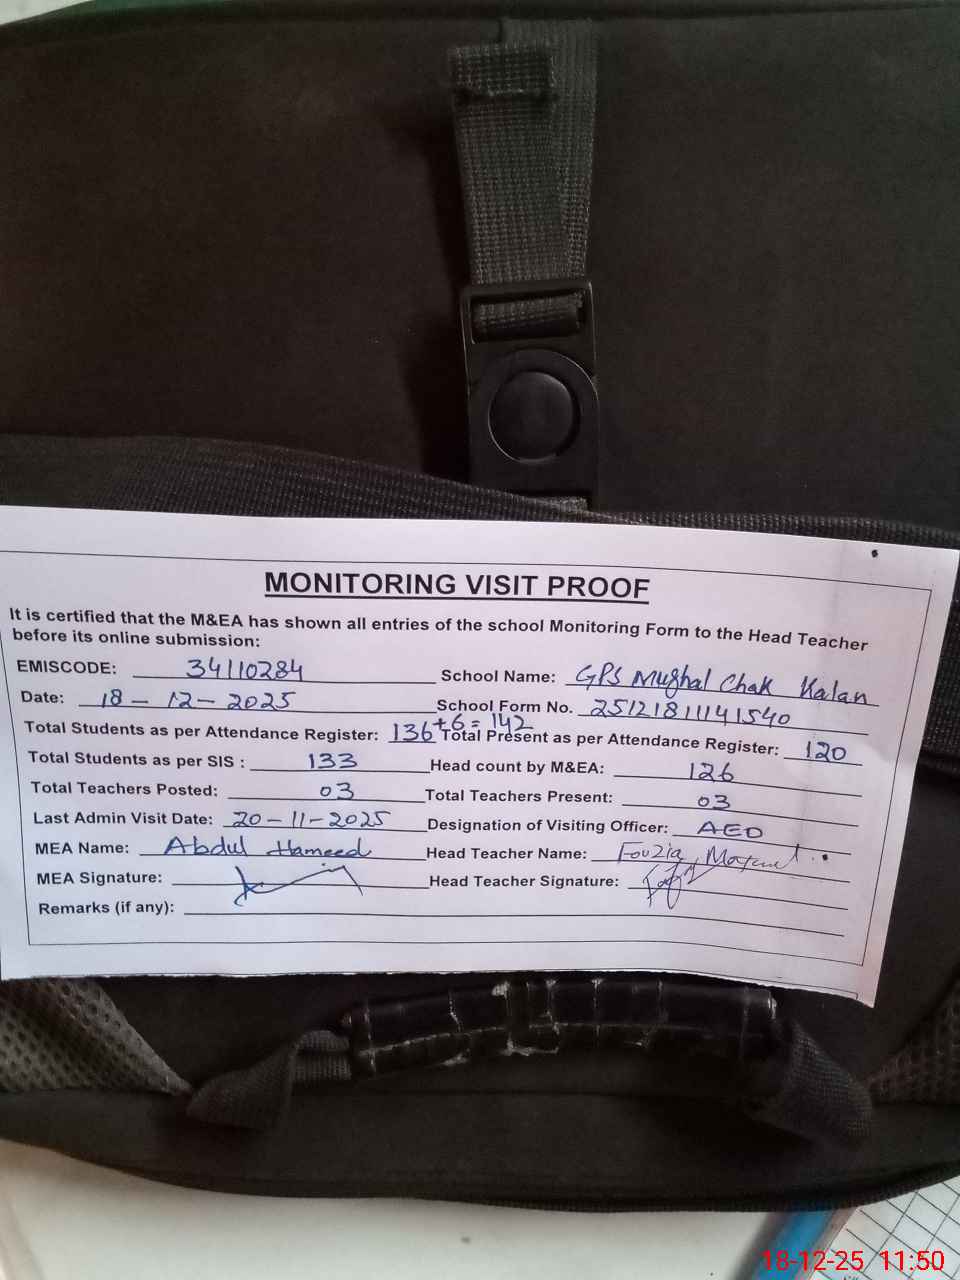 MONITORING VISIT PROOF
It is certified that the M&EA has shown all entries of the school Monitoring Form to the Head Teacher
before its online submission:
EMISCODE: 34110284 School Name: GPS Mughal Chak Kalan
Date: 18-12-2025 School Form No. 25121811141540
Total Students as per Attendance Register: 136+6=142 Total Present as per Attendance Register: 120
Total Students as per SIS : 133 Head count by M&EA: 126
Total Teachers Posted: 03 Total Teachers Present: 03
Last Admin Visit Date: 20-11-2025 Designation of Visiting Officer: AEO
MEA Name: Abdul Hameed Head Teacher Name: Fouzia
MEA Signature: Head Teacher Signature:
Remarks (if any):
18-12-25 11:50